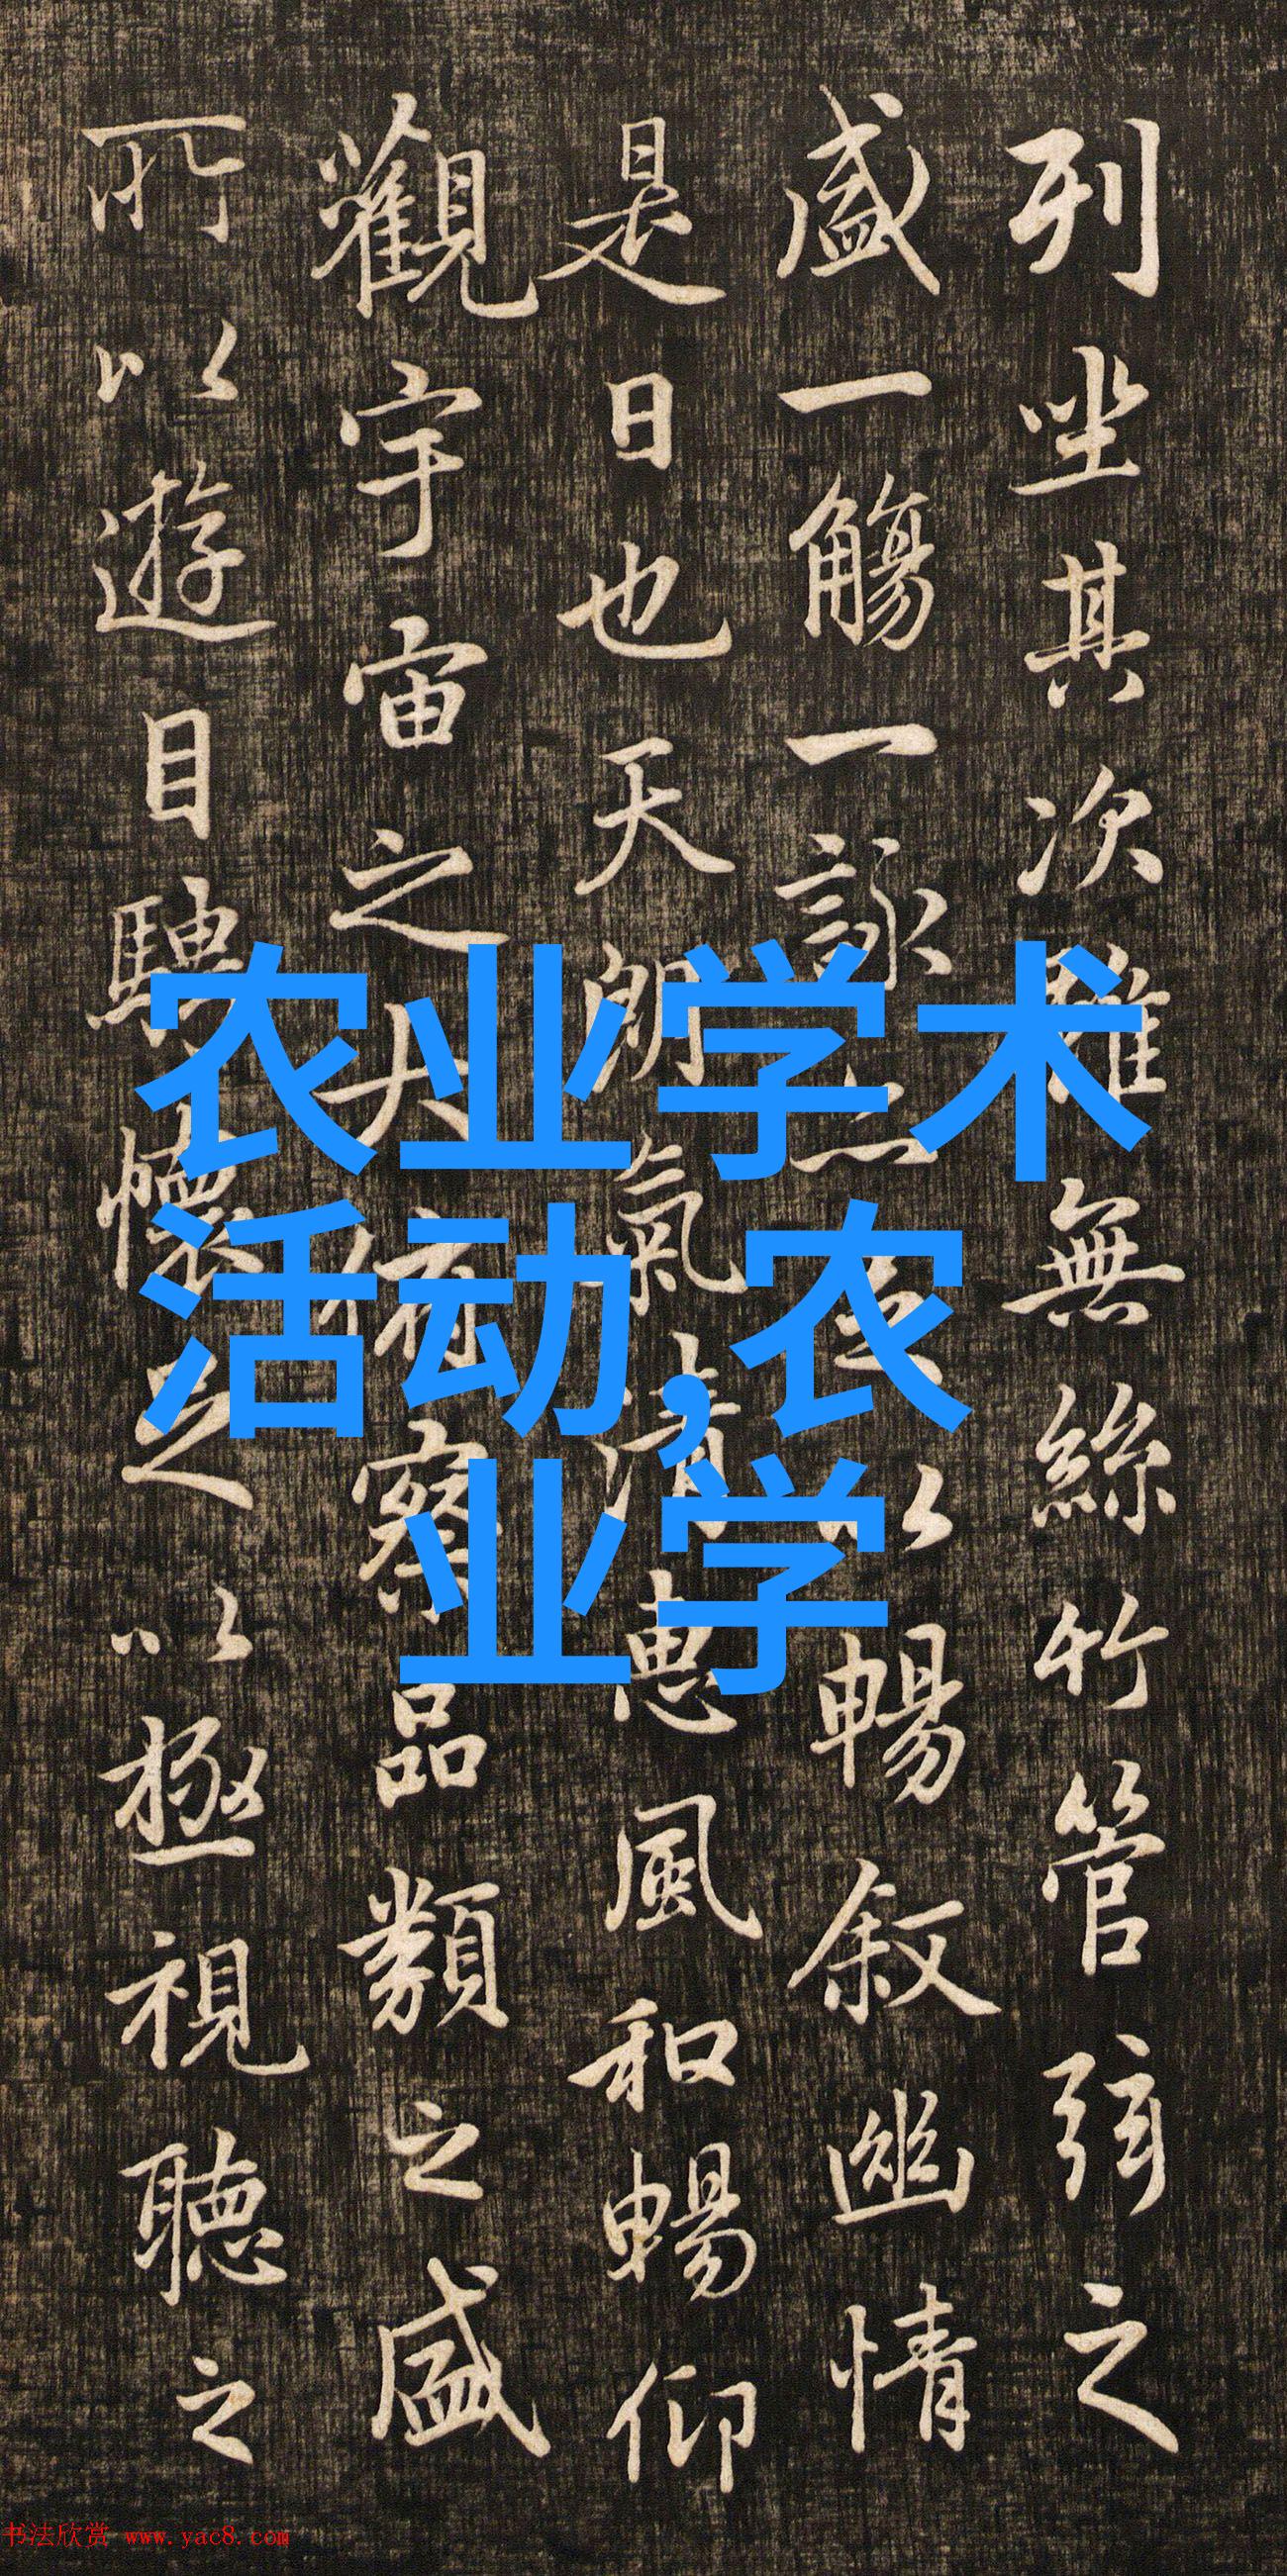 列坐其次雖無絲竹管弦之
盛一觴一詠亦足以暢叙幽情
是日也天朗氣清惠風和暢仰
觀宇宙之大俯察品類之盛
所以遊目騁懷足以極視聽之
农业学术
活动,农
业学
书法欣赏 www.yac8.com